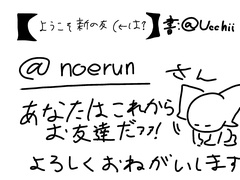 【ようこそ新の友(←は?】 書:@Uechii
@noerun さん
あなたはこれから
お友達だフフ!
よろしくおねがいします